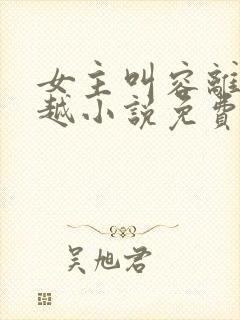 女主叫容離
越小說免費
吴旭君